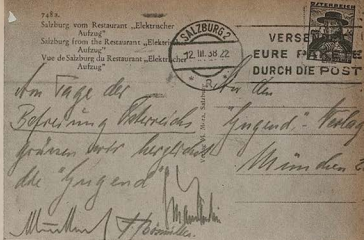 7482.
Salzburg vom Restaurant „Elektrischer
Aufzug"
Salzburg from the Restaurant „Elektrischer
Aufzug"
Vue de Salzburg du Restaurant „Elektrischer
Aufzug"
SALZBURG 2
12. III. 38. 22
VERSE
EURE
DURCH DIE POST
ÖSTERREICH
Am Tage der
Befreiung Österreichs
grüssen wir herzlichst
die "Jugend"
An den
"Jugend"-Verlag
München